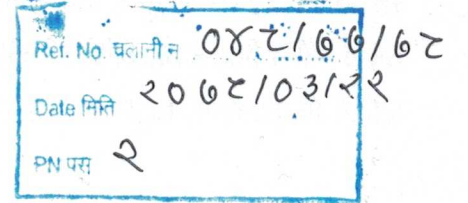 Ref. No. चलानी न ०४८/७७/७८
Date मिति २०७८/०३/२२
PN पस २